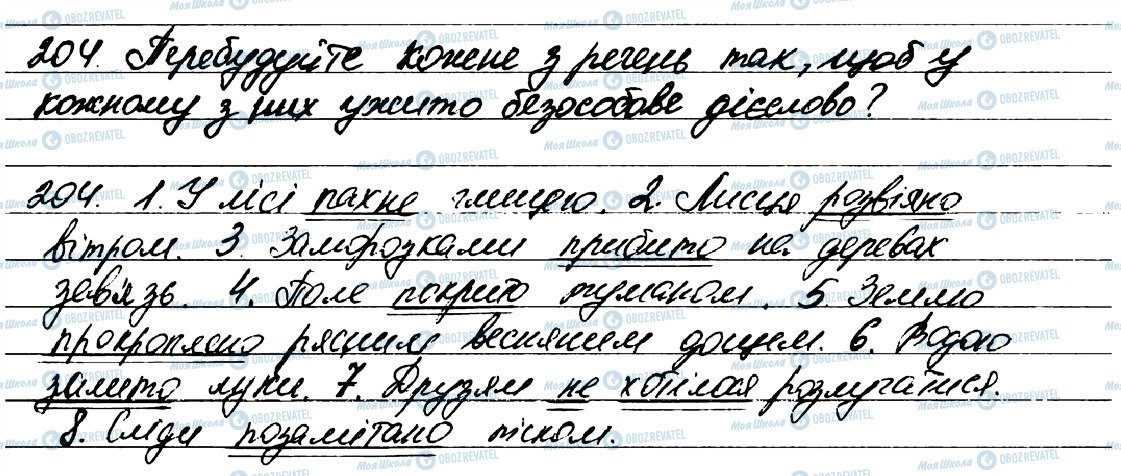 204. Перебудуйте кожне з речень так, щоб у
кожному з них ужито безособове дієслово?
204. 1. У лісі пахне глицею. 2. Листя розвіяно
вітром. 3. Заморозками прибито на деревах
зав'язь. 4. Поле покрито туманом. 5. Землю
прокроплено рясним весняним дощем. 6. Водою
залито луки. 7. Друзям не хотілося розлучатися.
8. Сліди позамітано піском.